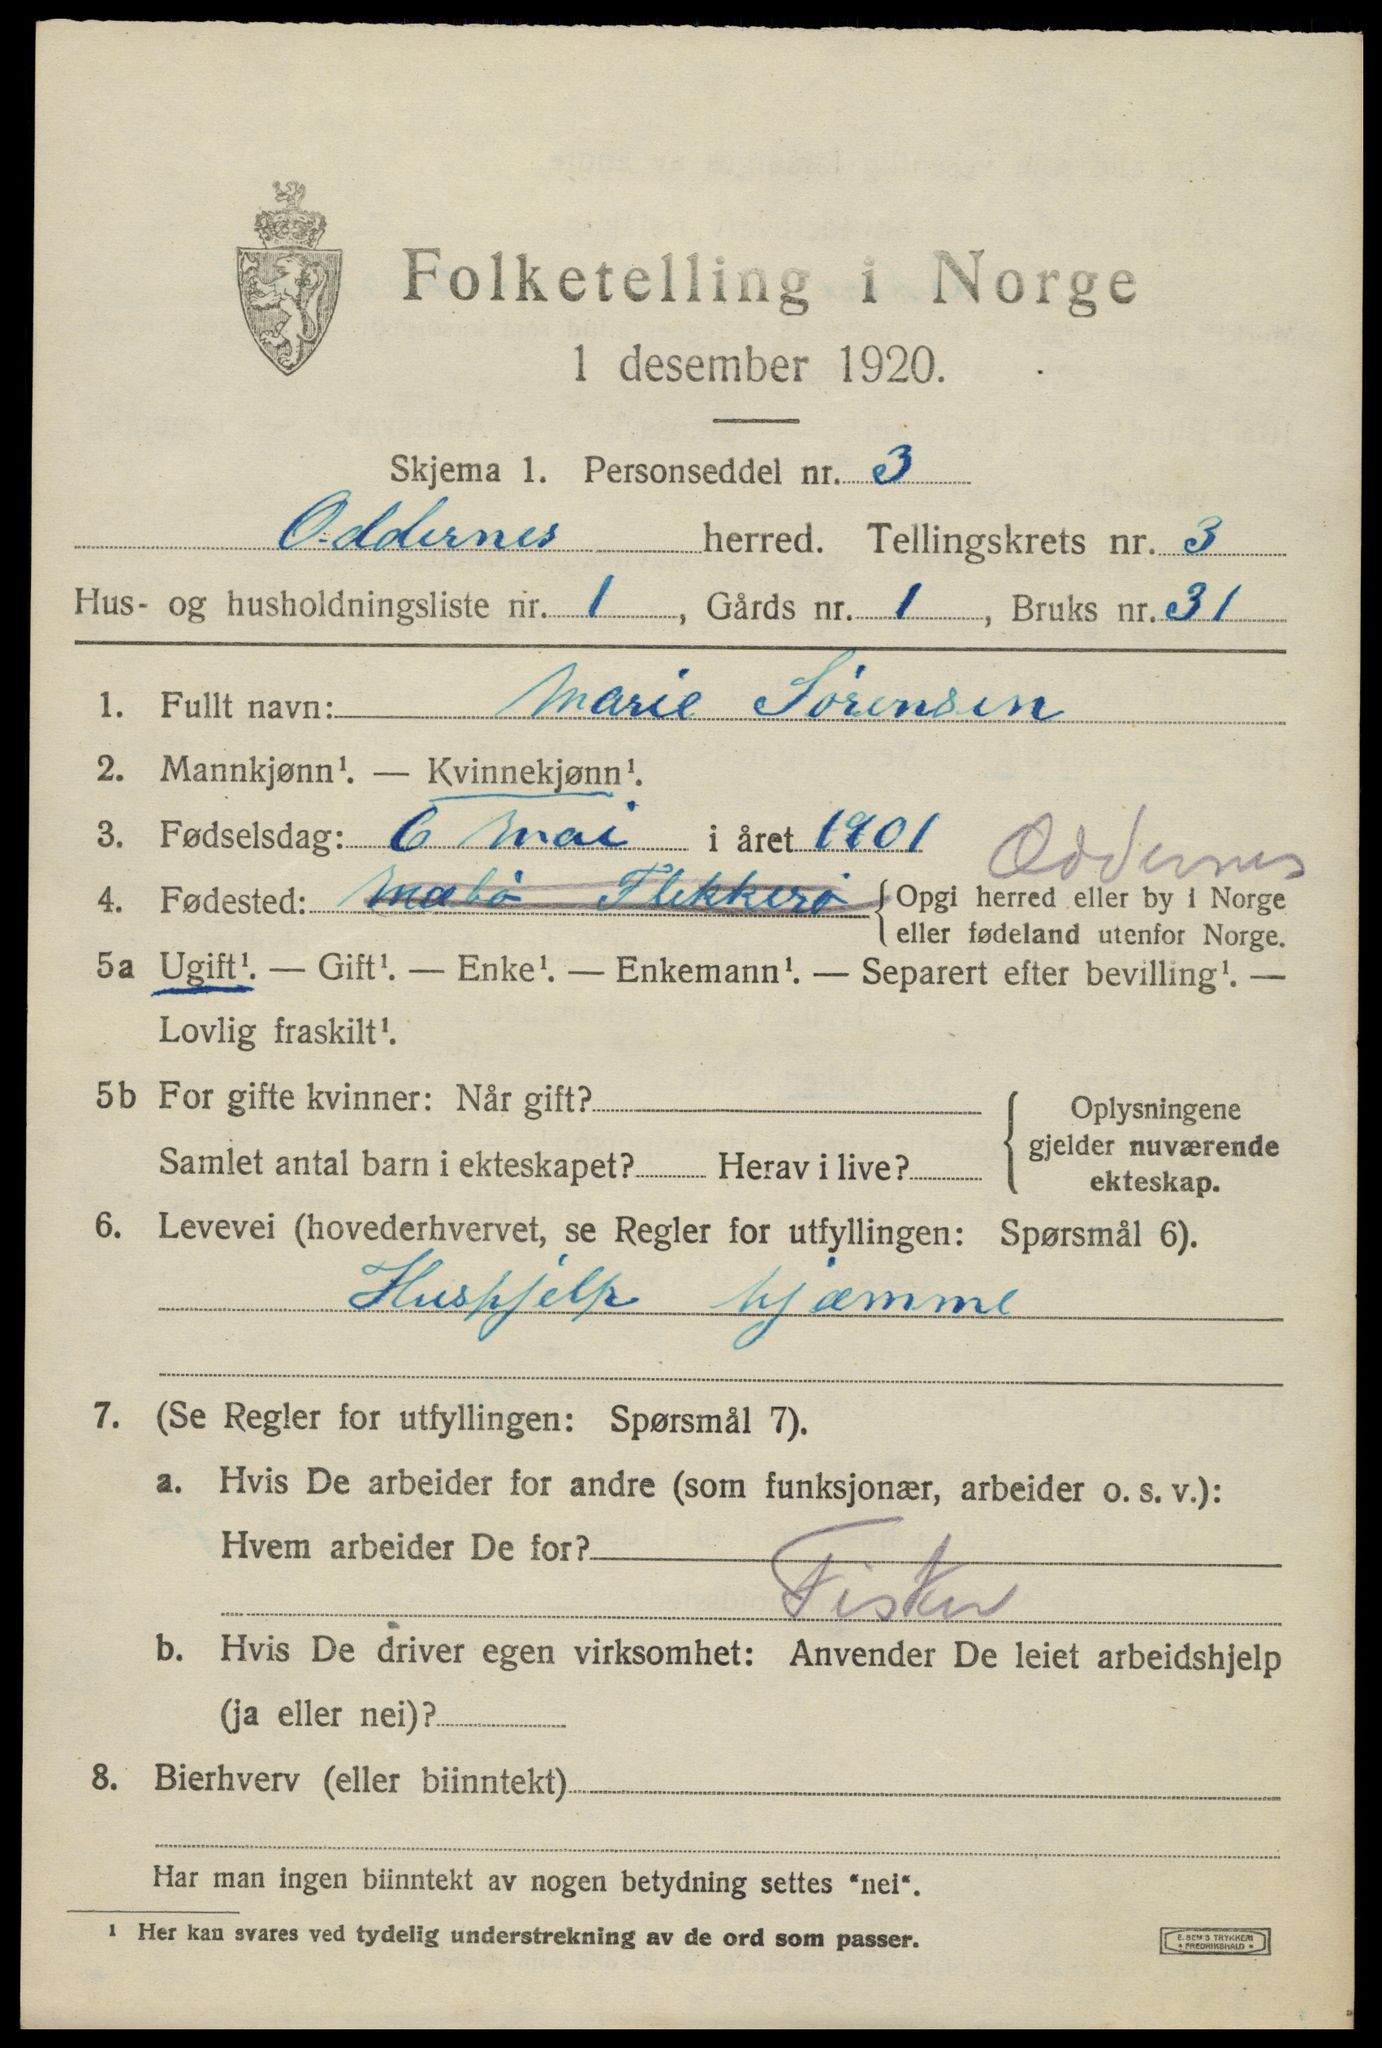 Folketelling i Norge
1 desember 1920.
Skjema 1. Personseddel nr. 3
Oddernes herred. Tellingskrets nr. 3
Hus- og husholdningsliste nr. 1, Gårds nr. 1, Bruks nr. 31
1. Fullt navn: Marie Sörensen
2. Mannkjønn¹. — Kvinnekjønn¹.
3. Fødselsdag: 6 Mai i året 1901 Oddernes
4. Fødested: Mæbö Flekkerö { Opgi herred eller by i Norge
eller fødeland utenfor Norge.
5a Ugift¹. — Gift¹. — Enke¹. — Enkemann¹. — Separert efter bevilling¹. —
Lovlig fraskilt¹.
5b For gifte kvinner: Når gift? { Oplysningene
gjelder nuværende
Samlet antal barn i ekteskapet? Herav i live? ekteskap.
6. Levevei (hovederhvervet, se Regler for utfyllingen: Spørsmål 6).
Hushjelp hjæmme
7. (Se Regler for utfyllingen: Spørsmål 7).
a. Hvis De arbeider for andre (som funksjonær, arbeider o. s. v.):
Hvem arbeider De for?
Fisker
b. Hvis De driver egen virksomhet: Anvender De leiet arbeidshjelp
(ja eller nei)?
8. Bierhverv (eller biinntekt)
Har man ingen biinntekt av nogen betydning settes "nei".
¹ Her kan svares ved tydelig understrekning av de ord som passer.
E. SEM'S TRYKKERI
FREDRIKSHALD